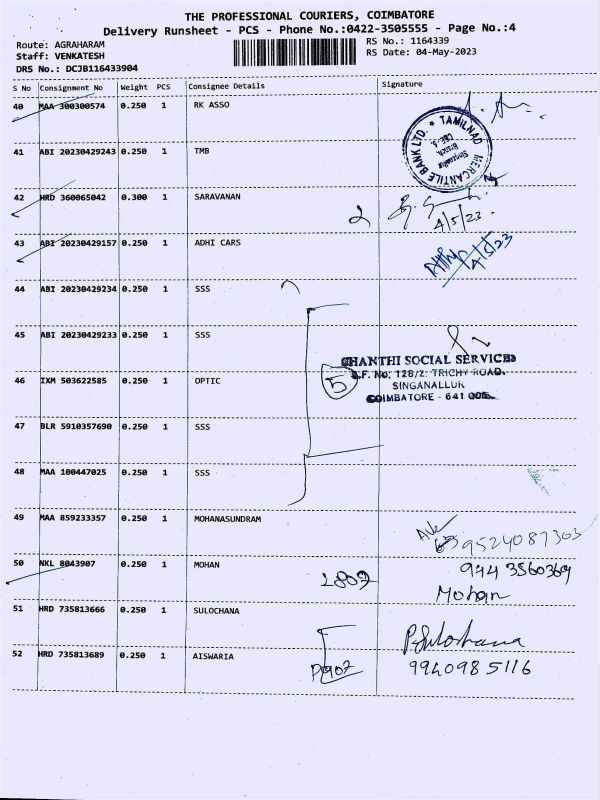 THE PROFESSIONAL COURIERS, COIMBATORE
Delivery Runsheet - PCS - Phone No.:0422-3505555 - Page No.:4
Route: AGRAHARAM
RS No.: 1164339
Staff: VENKATESH
RS Date: 04-May-2023
DRS No.: DCJB116433904
S No Consignment No Weight PCS Consignee Details Signature
40 MAA 300300574 0.250 1 RK ASSO
TAMILNAD MERCANTILE BANK LTD. Singanallur Branch, CBE - 5.
41 ABI 20230429243 0.250 1 TMB
42 HRD 360065042 0.300 1 SARAVANAN
2
4/5/23
43 ABI 20230429157 0.250 1 ADHI CARS
4/5/23
44 ABI 20230429234 0.250 1 SSS
45 ABI 20230429233 0.250 1 SSS
SHANTHI SOCIAL SERVICES
S.F. No: 128/2. TRICHY ROAD.
46 IXM 503622585 0.250 1 OPTIC
5
SINGANALLUR
COIMBATORE - 641 005.
47 BLR 5910357690 0.250 1 SSS
48 MAA 100447025 0.250 1 SSS
49 MAA 859233357 0.250 1 MOHANASUNDRAM
9524087303
50 NKL 8043907 0.250 1 MOHAN
9443560369
Mohan
51 HRD 735813666 0.250 1 SULOCHANA
P. Sulochana
52 HRD 735813689 0.250 1 AISWARIA
P907
9940985116